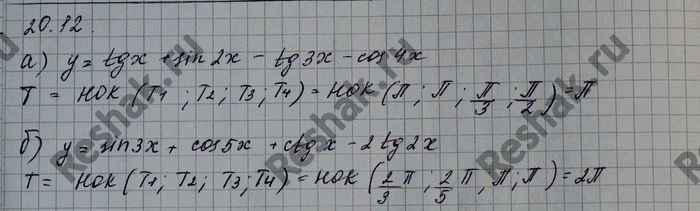 20.12.
а) y = tg x + sin 2x - tg 3x - cos 4x
T = НОК (T₁ ; T₂ ; T₃ ; T₄) = НОК (П ; П ; П/3 ; П/2) = П
б) y = sin 3x + cos 5x + ctg x - 2 tg 2x
T = НОК (T₁ ; T₂ ; T₃ ; T₄) = НОК (2/3 П ; 2/5 П , П ; П) = 2П
Reshak.ru
Reshak.ru
Reshak.ru